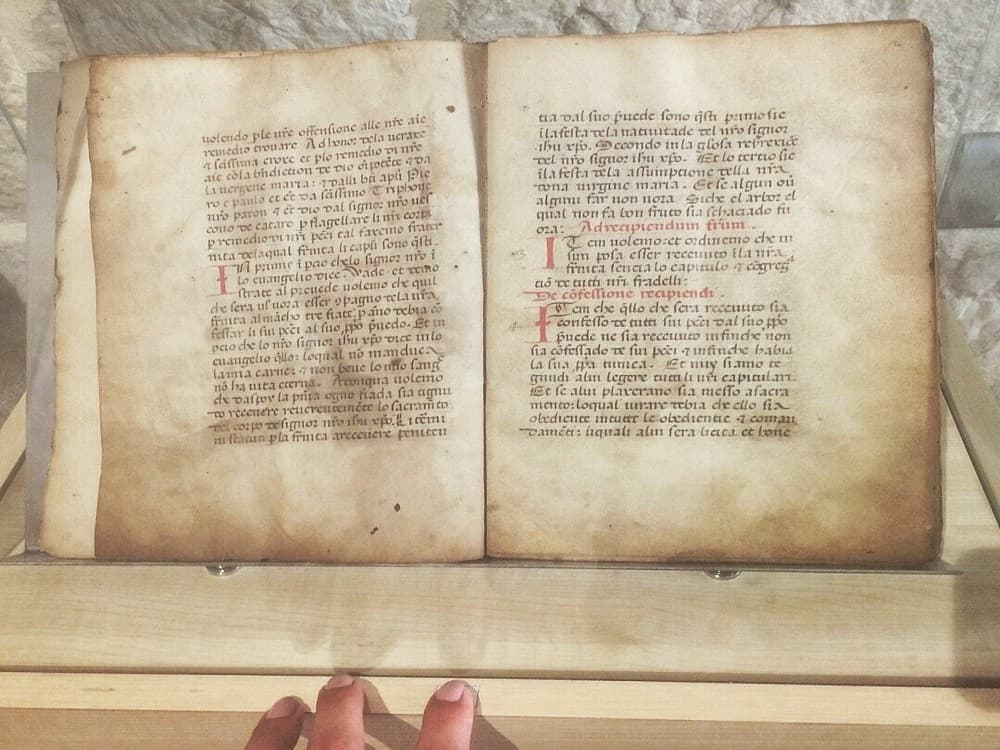 volendo ple nr̃e offensione alle nr̃e aie
remedio trouare. Ad honor dela uerax
⁊ sc̃issima croxe et plo remedio di nr̃e
aie cola bn̄diction de dio oīpotẽte ⁊ da
la uergene maria: ⁊ dalli bt̄i apl̄i Pie
ro e paulo et ẽt da sc̃issimo Triphone
nr̃o paron ⁊ ẽt dio dal signor nr̃o ues
couo de cataro p flagellare li nr̃i corpi
p remedio di nr̃i pc̃ci tal facimo frater
nita dela qual fr̃nita li capl̄i sono q̄sti.
In prima ī pcio chelo signor nr̃o ī
lo euangelio dice. Vade et demo
strate al preuede uolemo che quil
che sera ns̄ uora esser 9pagno dela nr̃a
fr̃nita almãcho tre fiate p año debia cõ
fessar li sui pc̃ci al suo ppp̄o p̃uedo. Et in
pcio che lo nr̃o signor ihũ xp̄o dice in lo
euangelio q̄llo: loqual nõ manduca
la mia carne: ⁊ non beue lo mio sang
nõ ha uita eterna. Adonqua uolemo
che daspoy la p̃ma ogno fiada sia tignu
to receuere reuerentemẽte lo sacram̃to
del corpo de signor nr̃o ihũ xp̄o. E item̃
instatuti pla fr̃nita areceuere penitẽ
tia dal suo p̃uede sono q̄sti primo sie
ī la festa dela natiuitade del nr̃o signor
ihũ xp̄o. Secondo in la glosa resurexiõe
del nr̃o signor ihũ xp̄o. Et lo tertio sie
ī la festa dela assumptione della nr̃a
dona uirgine maria. Et se algun oũ
alguni far non uora. Si che el arbor el
qual non fa bon fruto sia schaciado fu
ora: Ad recipiendum fr̃um.
Item uolemo et ordinemo che ni
sun posa esser receuuto ī la nr̃a
fr̃nita sencia lo capitulo ⁊ cõgreg
ciõ de tuti nr̃i fradelli:
De cõfessione recipiendi.
Item che q̄llo che sera receuuto sia
confesso de tutti sui pc̃ci dal suo ppp̄o
p̃uede ne sia receuuto infinche non
sia cõfessado de sui pc̃ci ⁊ infinche habia
la sua ppp̄a tunica. Et nuy siamo te
gnudi alui legere tutti li nr̃i capitulari.
Et se alui plaxerano sia messo a sacra
mento: loqual iurare debia che ello sia
obediente in tutte le obedientie ⁊ coman
damẽti: li quali alui sera licita et hone